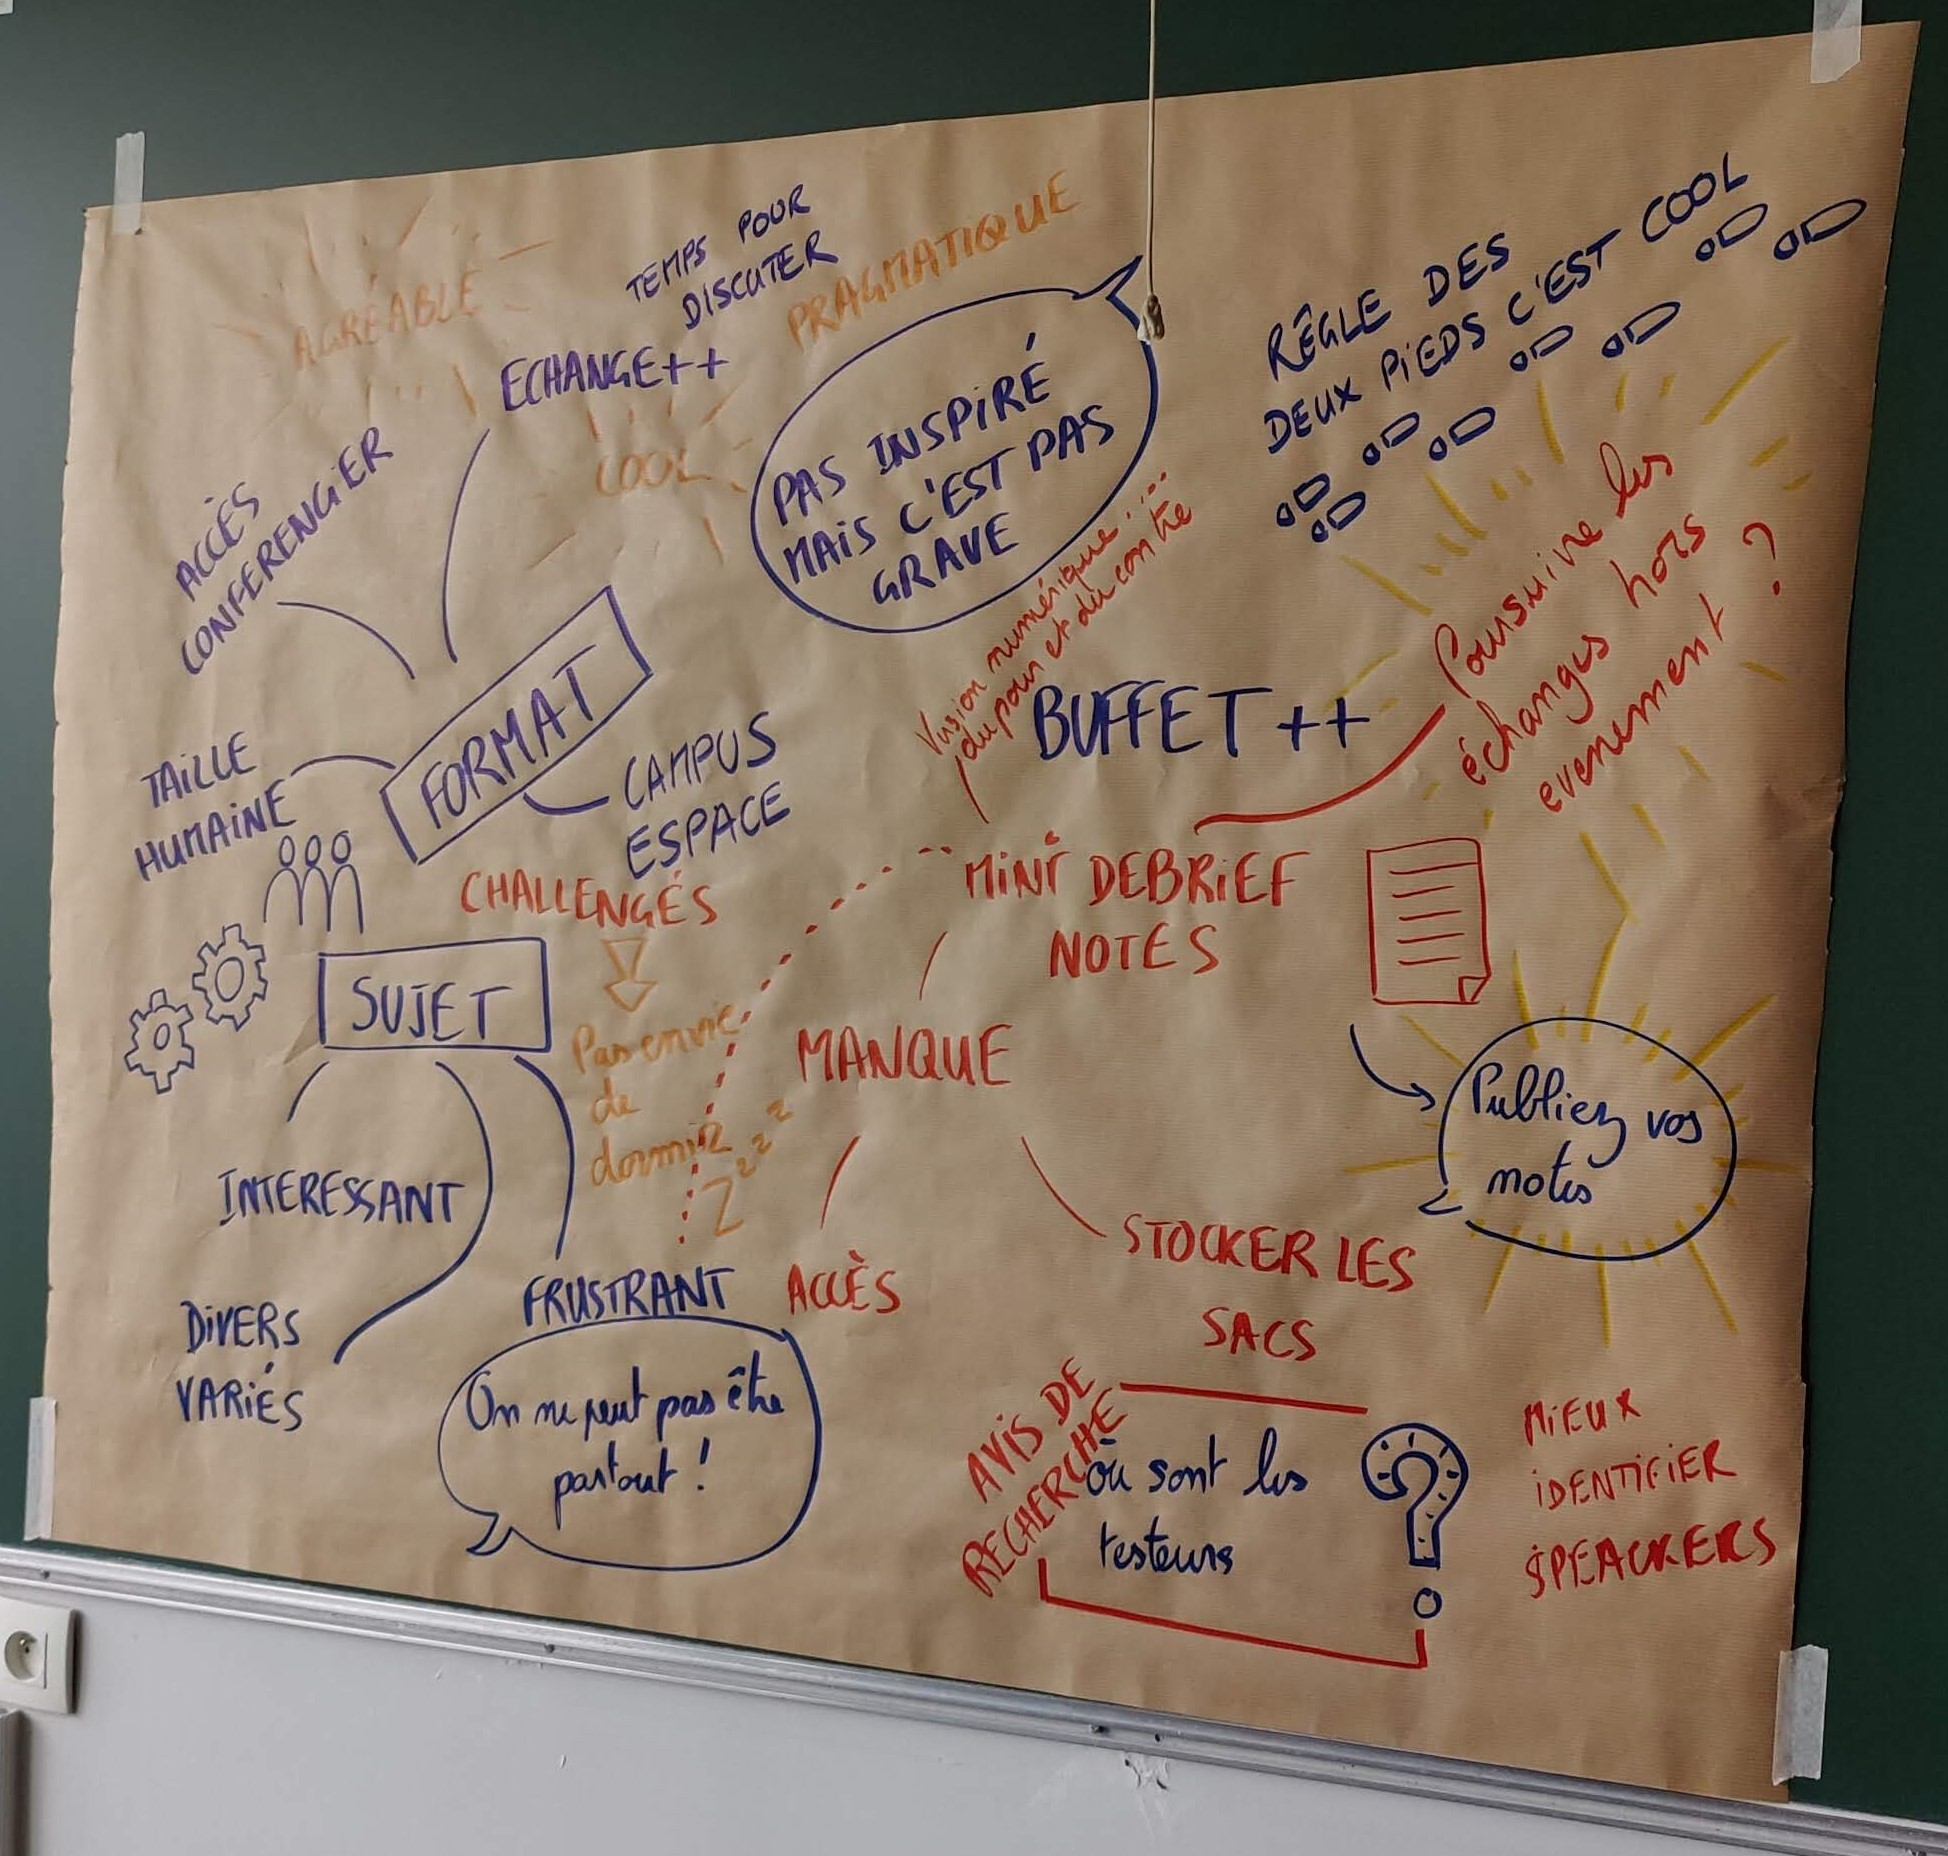 AGRÉABLE
TEMPS POUR
DISCUTER
PRAGMATIQUE
ECHANGE++
COOL
ACCÈS
CONFERENCIER
PAS INSPIRÉ
MAIS C'EST PAS
GRAVE
RÈGLE DES
DEUX PIEDS C'EST COOL
Poursuivre les
échanges hors
evenement ?
Vision numérique ...
du pour et du contre
BUFFET ++
FORMAT
TAILLE
HUMAINE
CAMPUS
ESPACE
CHALLENGÉS
Pas envie
de
dormir
Zzzz
MINI DEBRIEF
NOTES
SUJET
MANQUE
Publiez vos
notes
INTERESSANT
DIVERS
VARIÉS
FRUSTRANT
On ne peut pas être
partout !
ACCÈS
STOCKER LES
SACS
AVIS DE
RECHERCHE
où sont les
testeurs
?
MIEUX
IDENTIFIER
SPEACKERS